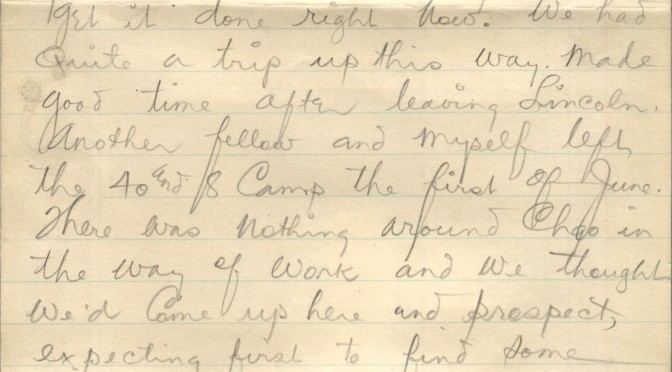 get it done right now. We had
quite a trip up this way. Made
good time after leaving Lincoln.
Another fellow and myself left
the 40 and 8 Camp the first of June.
There was nothing around in
the way of work and we thought
We'd Come up here and prospect,
expecting first to find some